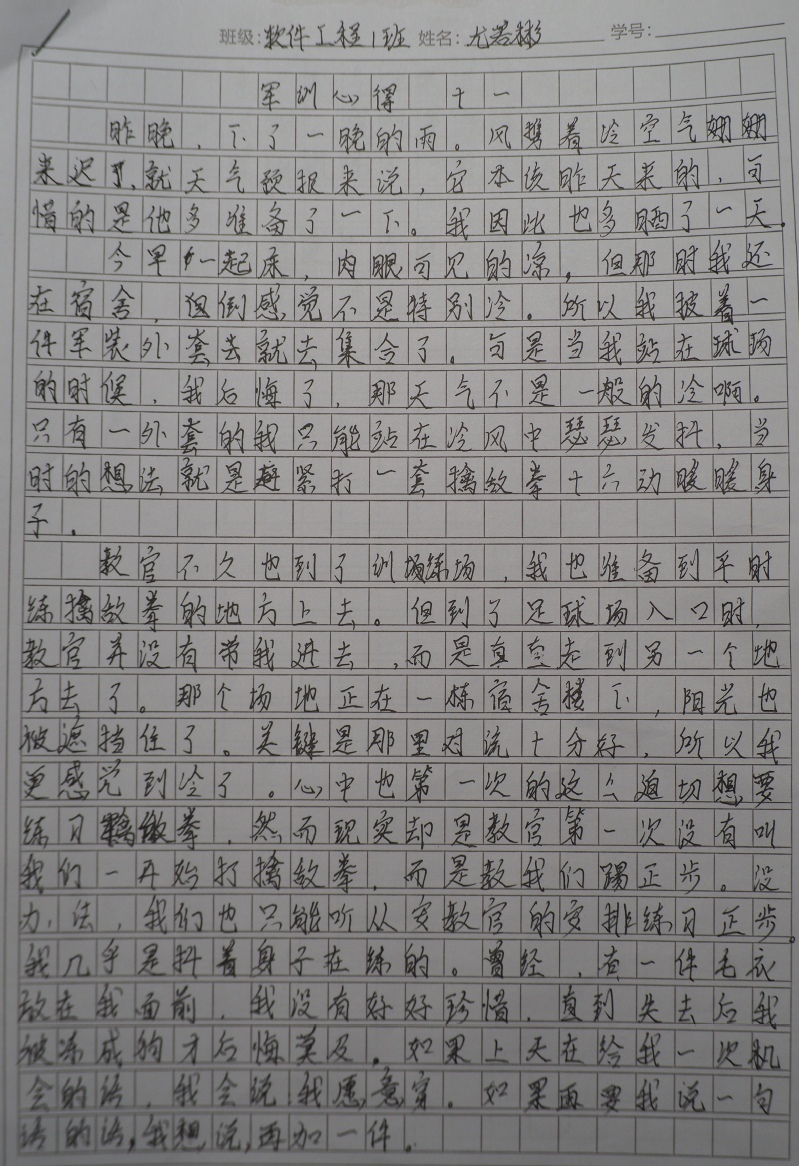 班级: 软件工程1班 姓名: 尤若彬 学号:
军训心得 十一
昨晚，下了一晚的雨。风携着冷空气姗姗
来迟了，就天气预报来说，它本该昨天来的，可
惜的是他多准备了一下。我因此也多晒了一天。
今早一起床，肉眼可见的凉，但那时我还
在宿舍，但倒感觉不是特别冷。所以我披着一
件军装外套去就去集合了。可是当我站在球场
的时候，我后悔了，那天气不是一般的冷啊。
只有一外套的我只能站在冷风中瑟瑟发抖，当
时的想法就是赶紧打一套擒敌拳十六动暖暖身
子。
教官不久也到了训练场，我也准备到平时
练擒敌拳的地方上去。但到了足球场入口时，
教官并没有带我进去，而是直至走到另一个地
方去了。那个场地正在一栋宿舍楼下，阳光也
被遮挡住了。关键是那里对流十分好，所以我
更感觉到冷了。心中也第一次的这么迫切想要
练习擒敌拳，然而现实却是教官第一次没有叫
我们一开始打擒敌拳，而是教我们踢正步。没
办法，我们也只能听从安教官的安排练习正步。
我几乎是抖着身子在练的。曾经，有一件毛衣
放在我面前，我没有好好珍惜，直到失去后我
被冻成狗才后悔莫及。如果上天在给我一次机
会的话，我会说我愿意穿。如果再要我说一句
话的话，我想说，再加一件。